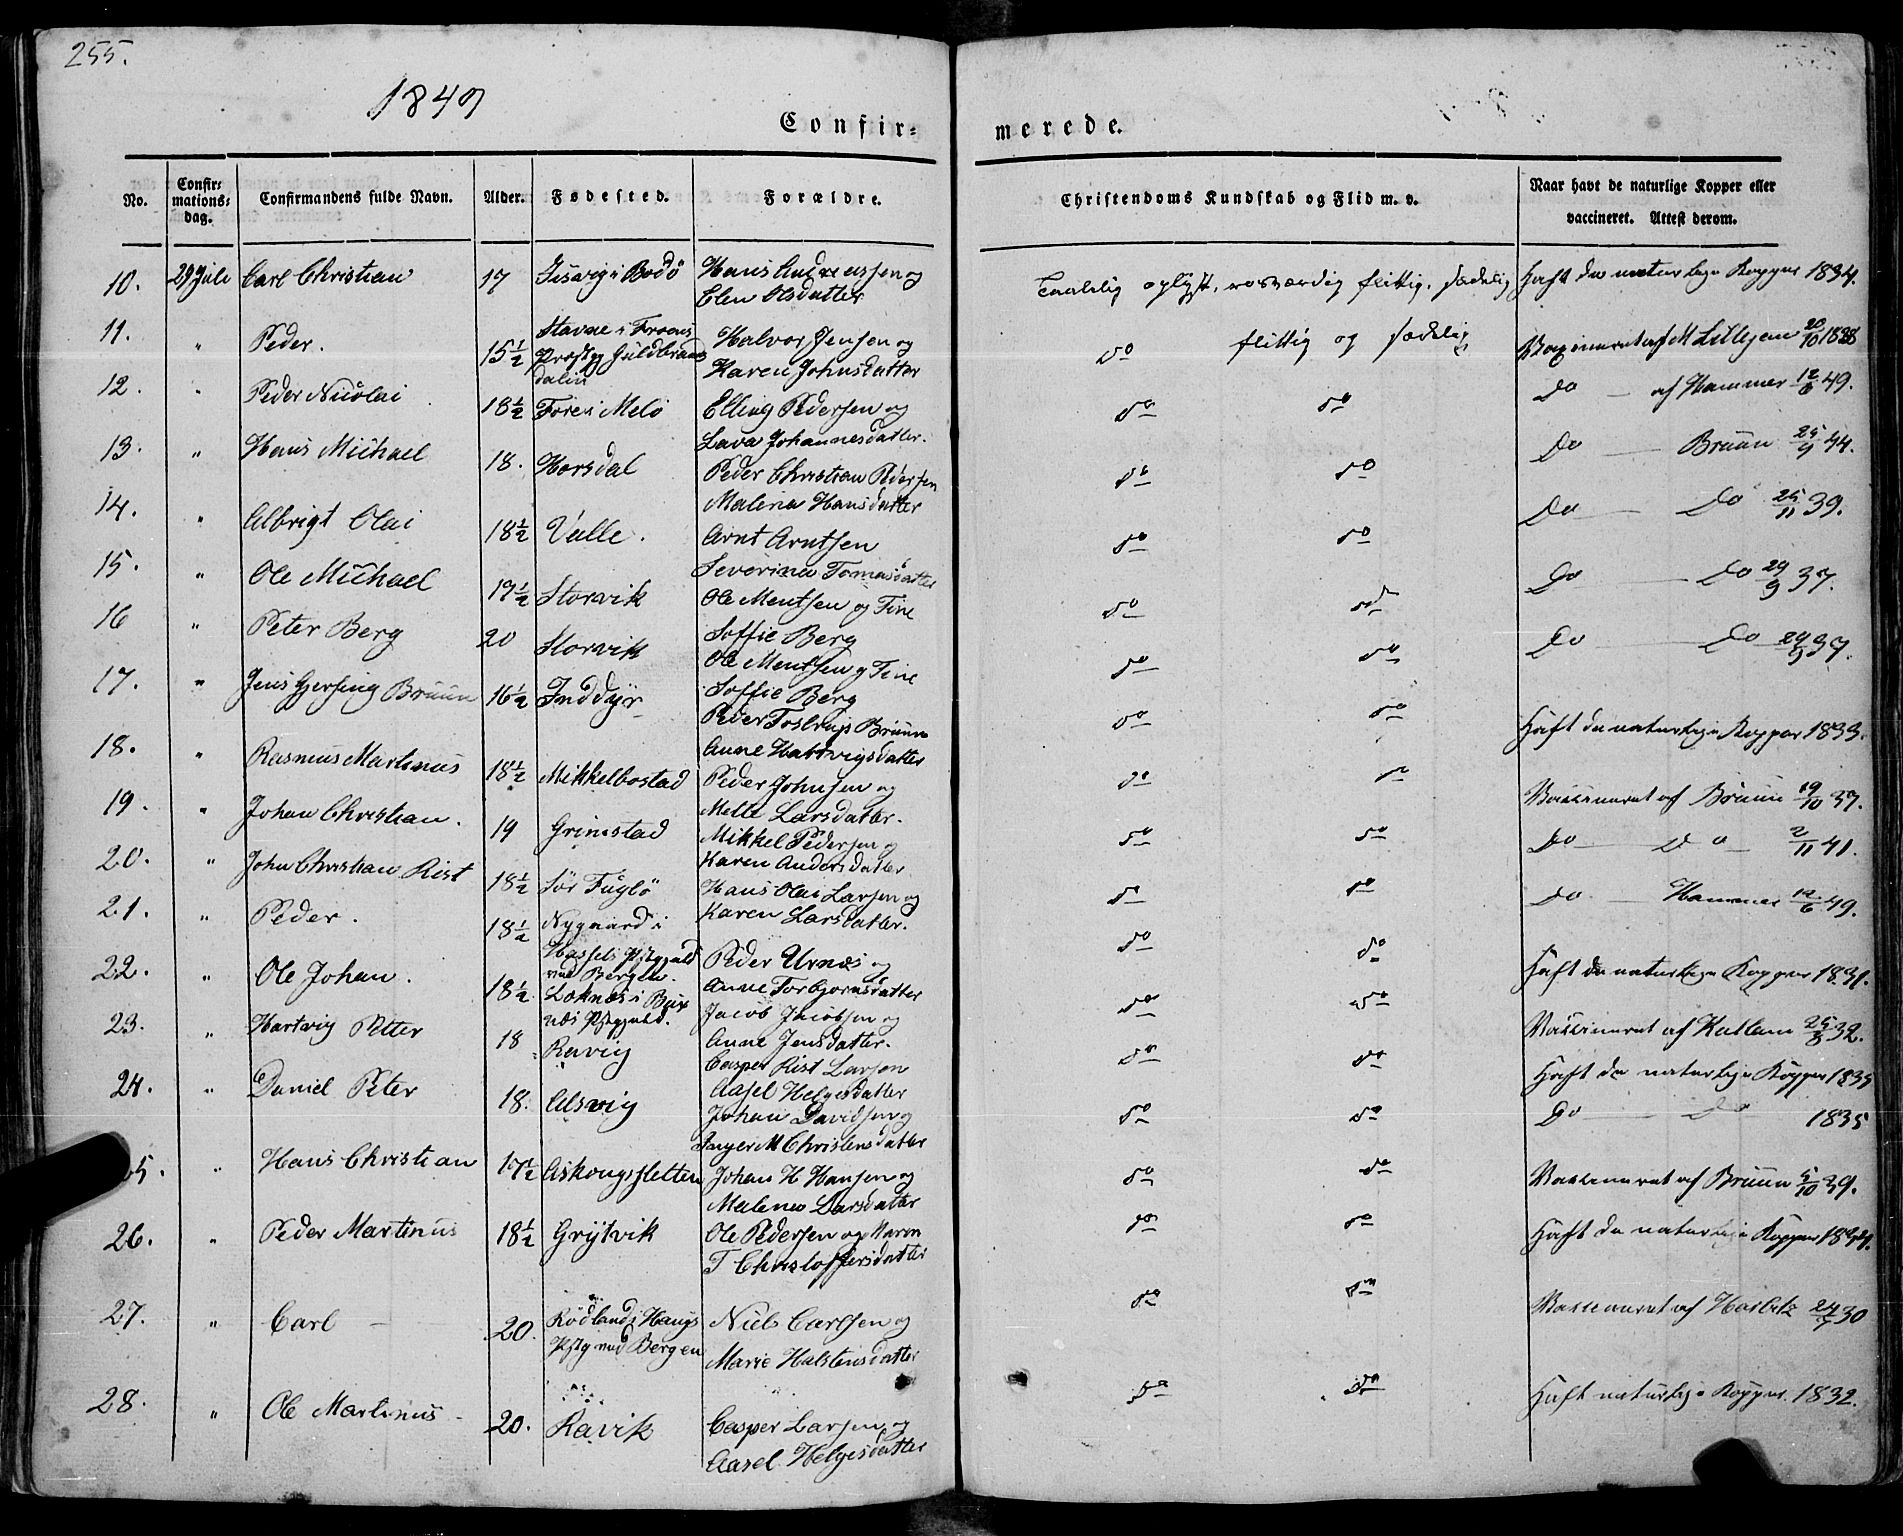 255.
1849
Confir=
merede.
No. Confir=mations=dag. Confirmandens fulde Navn. Alder. Fødested. Forældre. Christendoms Kundskab og Flid m. v. Naar havt de naturlige Kopper eller vaccineret. Attest derom.
10. 29 Juli Carl Christian 17 i Bodö Hans Andreassen og Elen Olsdatter Taalelig oplyst, flittig, sædelig Haft de naturlige Kopper 1834.
11. " Peder. 15½ Stavne i Præstg Guldbrandsdalen Halvor Jensen og Karen Johnsdatter do flittig og sædelig af M Lillejem 20/10
12. " Peder Nicolai 18½ Fore i Melö Elling Pedersen og Lava Johannesdatter. do do Do — af Hammer 12/6 49.
13. " Hans Michael 18. Horsdal Peder Christian Pedersen Malena Hansdatter do do Do — Bruun 25/9 44.
14. " Albrigt Olai 18½ Valle. Arnt Arntsen Severina Tomasdatter do do Do — Do 25/11 39.
15. " Ole Michael 17½ Storvik Ole Mentsen og Tine Soffie Berg do do Do — Do 29/9 37.
16 " Peter Berg 20 Storvik Ole Mentsen og Tine Soffie Berg do do Do — Do 29/9 37.
17. " Jens Gjersing Bruun 16½ Inddyr Peder Tostrup Bruun Anne Hartvigsdatter do do Haft de naturlige Kopper 1833.
18. " Rasmus Martinus 18½ Mikkelbostad Peder Johnsen og Melle Larsdatter. do do Vaccineret af Bruun 19/10 37.
19. " Johan Christian. 19 Grimstad Mikkel Pedersen og Karen Andersdatter do do Do — Do — 2/11 41.
20. " John Christian Rist 18½ Sör Fuglö Hans Olai Larsen og Karen Larsdatter. do do Do — Hammer 12/6 49.
21. " Peder. 18½ Nygaard i Præstgjeld ved Bergen. Peder Urnæs og Anne Torbjornsdatter do do Haft de naturlige Kopper 1831.
22. " Ole Johan. 18½ Loknæs i Jacob Jacobsen og Anne Jensdatter. do do Vaccineret af 25/8 32.
23. " Hartvig Petter 18 Ravig Casper Rist Larsen Aasel Helgesdatter do do Haft de naturlige Kopper 1835
24. " Daniel Peter 18. Alsvig Johan Davidsen og Inger M Christensdatter do do Do — Do 1835
25. " Hans Christian 17½ Askongsletten Johan H Hansen og Malena Larsdatter do do Vaccineret af Bruun 5/10 39.
26. " Peder Martinus 18½ Grÿtvik Ole Pedersen og Maren T Christoffersdatter do do Haft de naturlige Kopper
27. " Carl — 20. Rödland i Haugs Pstg ved Bergen Niels Carlsen og Marie Halstensdatter do do Vaccineret af 24/7 30
28. " Ole Martinus 20. Ravik Casper Larsen og Aasel Helgesdatter do do Haft naturlige Kopper. 1832.